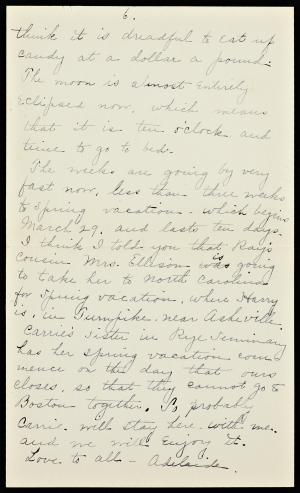 6.
think it is dreadful to eat up
candy at a dollar a pound.
The moon is almost entirely
eclipsed now, which means
that it is ten o'clock and
time to go to bed.
The weeks are going by very
fast now, less than three weeks
to Spring vacation, which begins
March 29, and lasts ten days.
I think I told you that Ray's
cousin Mrs. Ellison is going
to take her to North Carolina
for Spring vacation, where Harry
is, in Turnpike, near Asheville.
Carrie's sister in Rye Seminary
has her spring vacation com-
mence on the day that ours
closes, so that they cannot go to
Boston together. So probably
Carrie will stay here with me.
and we will enjoy it.
Love to all - Adelaide.